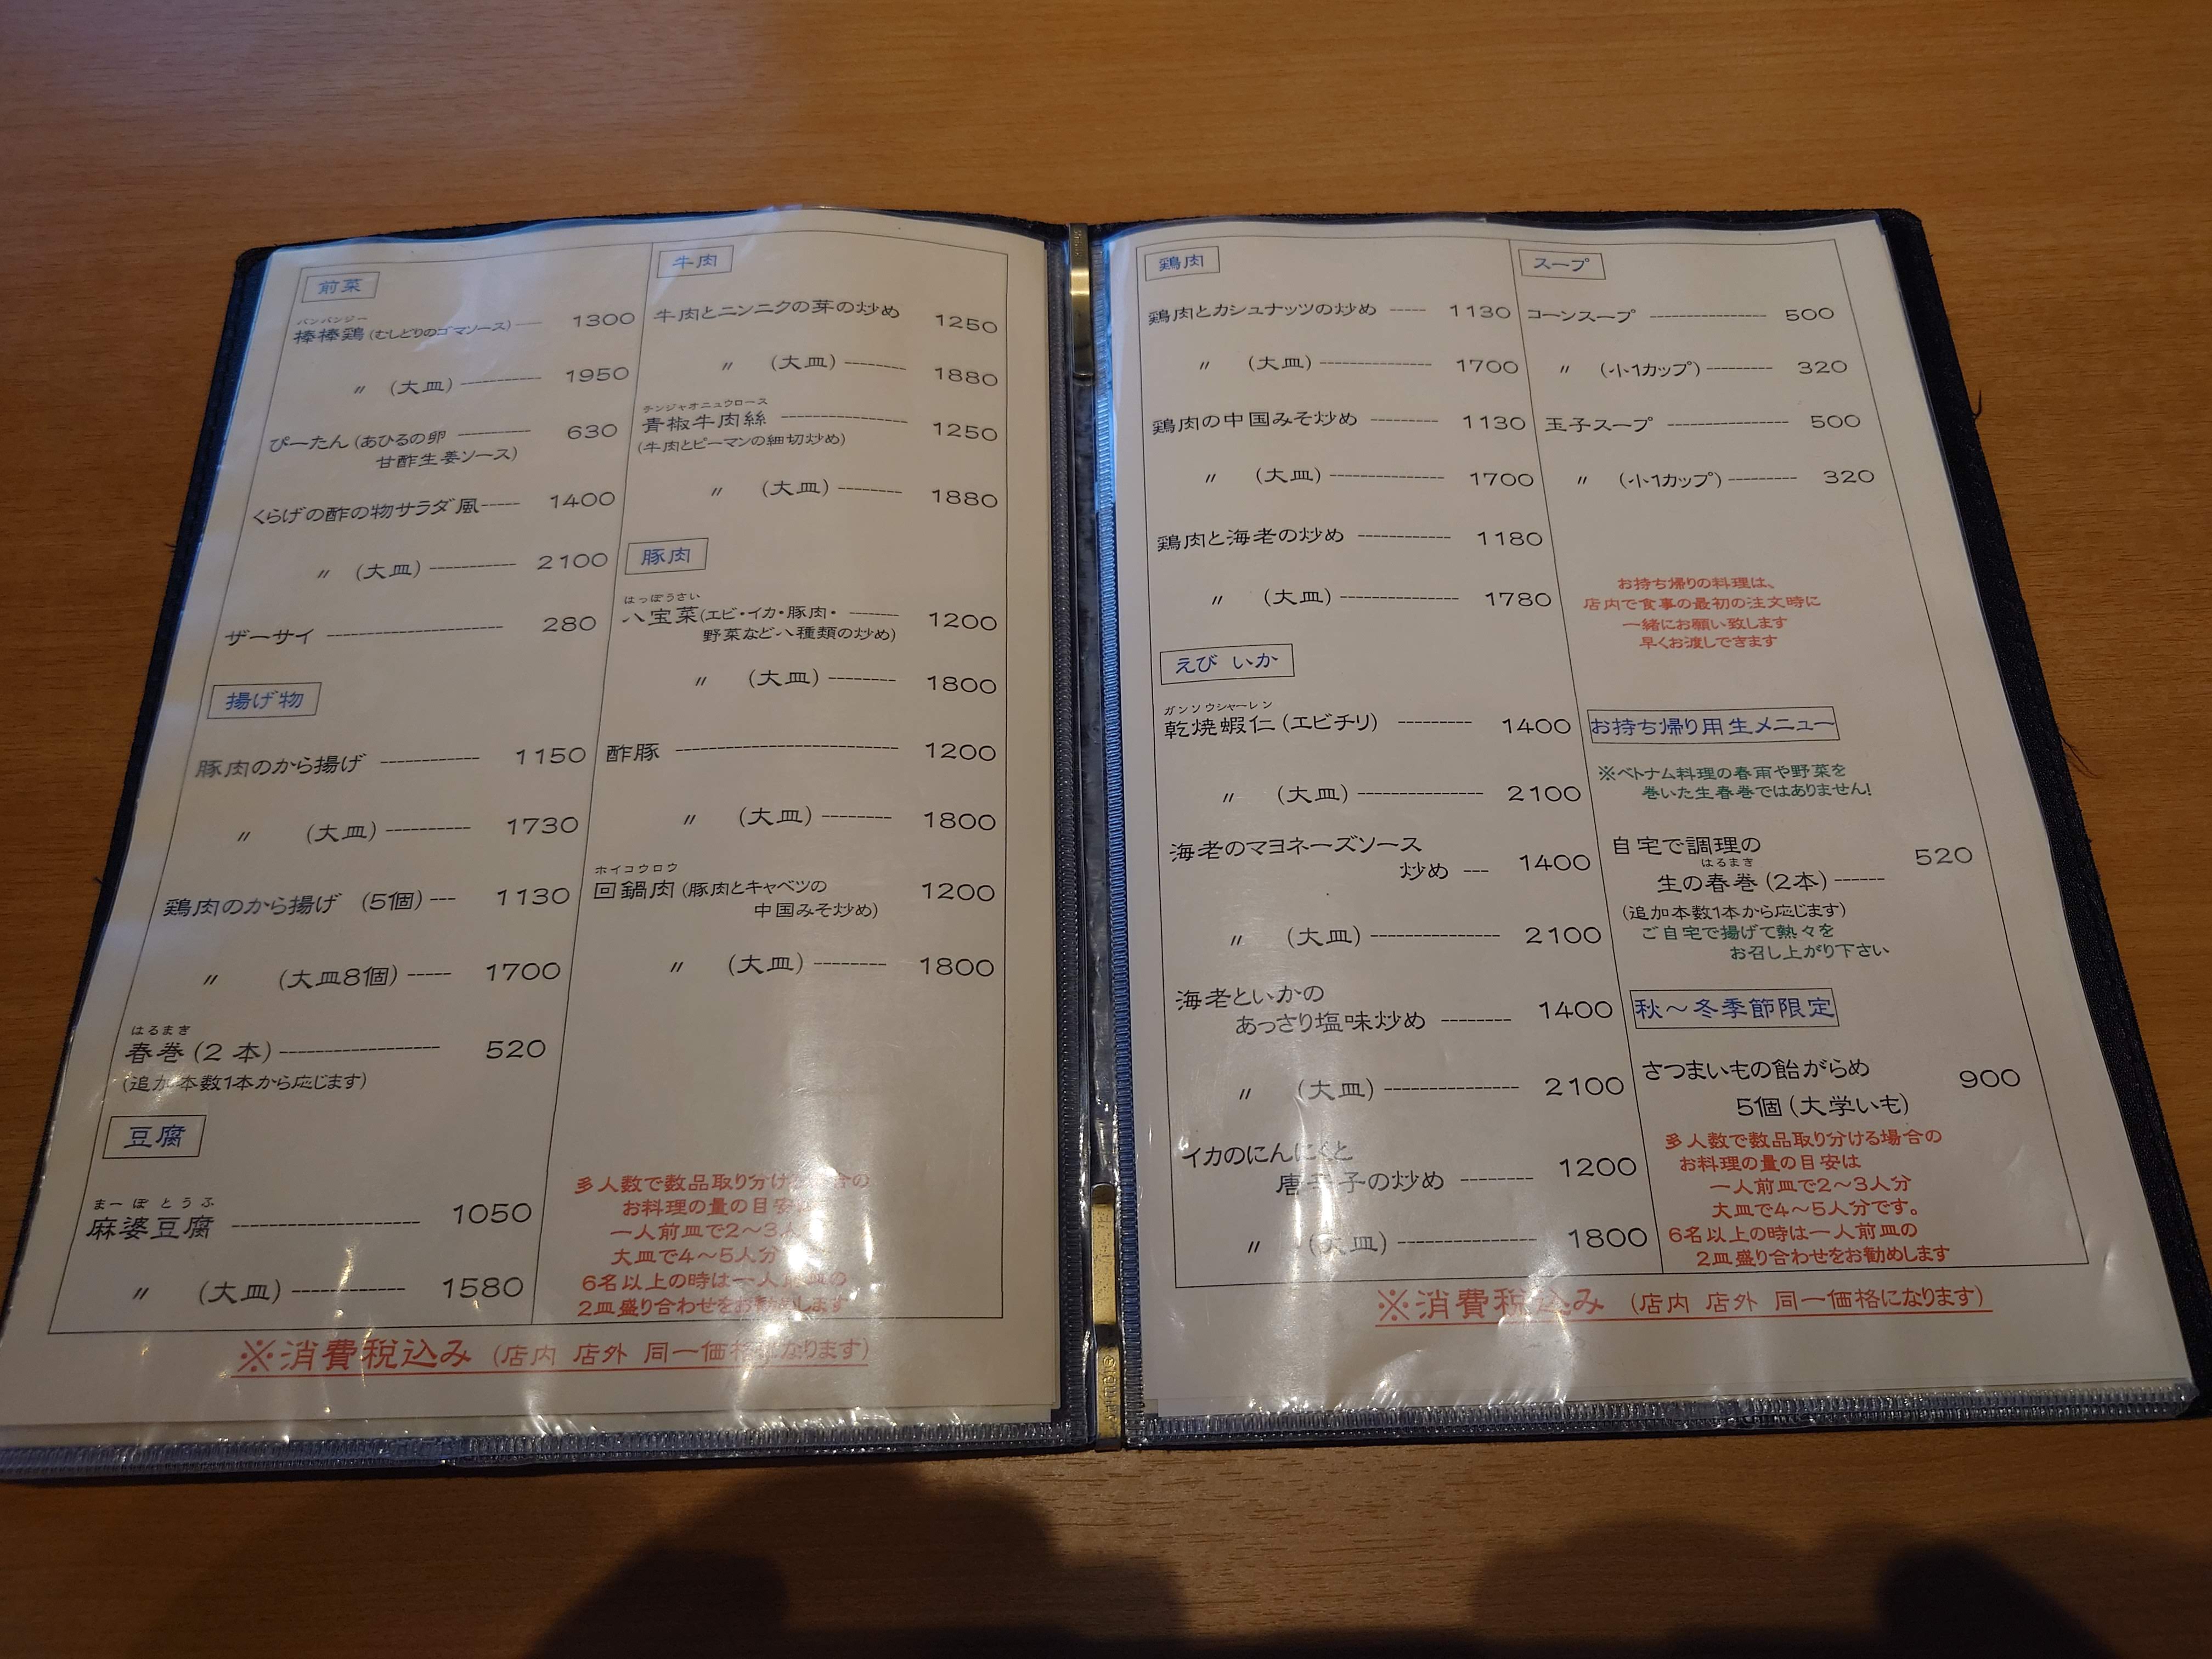 前菜
バンバンジー
棒棒鶏(むしどりのゴマソース) 1300
〃 (大皿) 1950
ぴーたん(あひるの卵 630
甘酢生姜ソース)
くらげの酢の物サラダ風 1400
〃 (大皿) 2100
ザーサイ 280
揚げ物
豚肉のから揚げ 1150
〃 (大皿) 1730
鶏肉のから揚げ (5個) 1130
〃 (大皿8個) 1700
はるまき
春巻(2 本) 520
(追加本数1本から応じます)
豆腐
まーぼとうふ
麻婆豆腐 1050
〃 (大皿) 1580
牛肉
牛肉とニンニクの芽の炒め 1250
〃 (大皿) 1880
チンジャオニュウロース
青椒牛肉絲 1250
(牛肉とピーマンの細切炒め)
〃 (大皿) 1880
豚肉
はっぽうさい
八宝菜(エビ・イカ・豚肉・ 1200
野菜など八種類の炒め)
〃 (大皿) 1800
酢豚 1200
〃 (大皿) 1800
ホイコウロウ
回鍋肉(豚肉とキャベツの 1200
中国みそ炒め)
〃 (大皿) 1800
多人数で数品取り分ける場合の
お料理の量の目安
一人前皿で2〜3人
大皿で4〜5人分
6名以上の時は一人前皿の
2皿盛り合わせをお勧めします
※消費税込み (店内 店外 同一価格になります)
鶏肉
鶏肉とカシュナッツの炒め 1130
〃 (大皿) 1700
鶏肉の中国みそ炒め 1130
〃 (大皿) 1700
鶏肉と海老の炒め 1180
〃 (大皿) 1780
えび いか
ガンソウシャーレン
乾焼蝦仁(エビチリ) 1400
〃 (大皿) 2100
海老のマヨネーズソース
炒め 1400
〃 (大皿) 2100
海老といかの
あっさり塩味炒め 1400
〃 (大皿) 2100
イカのにんにくと
唐辛子の炒め 1200
〃 (大皿) 1800
スープ
コーンスープ 500
〃 (小1カップ) 320
玉子スープ 500
〃 (小1カップ) 320
お持ち帰りの料理は、
店内で食事の最初の注文時に
一緒にお願い致します
早くお渡しできます
お持ち帰り用生メニュー
※ベトナム料理の春雨や野菜を
巻いた生春巻ではありません!
自宅で調理の 520
はるまき
生の春巻(2本)
(追加本数1本から応じます)
ご自宅で揚げて熱々を
お召し上がり下さい
秋〜冬季節限定
さつまいもの飴がらめ 900
5個(大学いも)
多人数で数品取り分ける場合の
お料理の量の目安は
一人前皿で2〜3人分
大皿で4〜5人分です。
6名以上の時は一人前皿の
2皿盛り合わせをお勧めします
※消費税込み (店内 店外 同一価格になります)